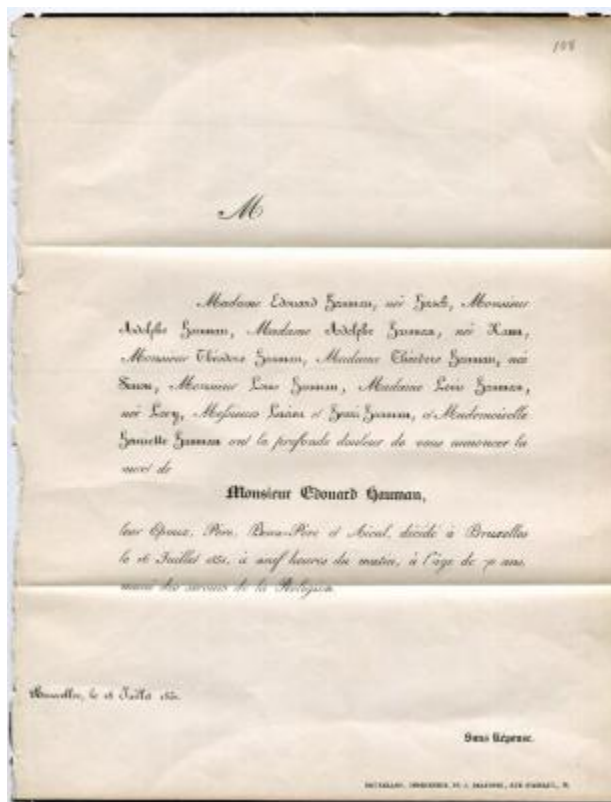 108
M
Madame Edouard Hauman, née Monsieur
Adolphe Hauman, Madame Adolphe Hauman, née
Monsieur Théodore Hauman, Madame Théodore Hauman, née
Monsieur Louis Hauman, Madame Louis Hauman,
née Messieurs et Hauman, et Mademoiselle
Hauman ont la profonde douleur de vous annoncer la
mort de
Monsieur Edouard Hauman,
leur Epoux, Père, Beau-Père et Aïeul, décédé à Bruxelles
le 16 Juillet à neuf heures du matin, à l'âge de ans,
muni des secours de la Religion.
Bruxelles, le Juillet
Sans Réponse.
BRUXELLES, IMPRIMERIE DE J.